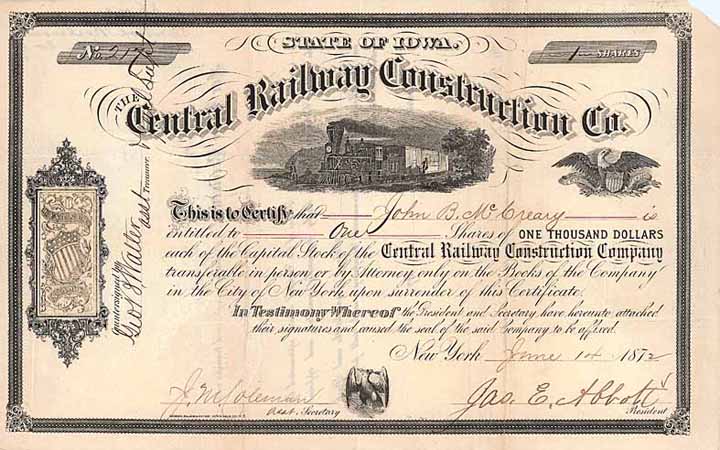 STATE OF IOWA.
No. 217
1 SHARES
THE
Central Railway Construction Co.
This is to Certify that John B. McCreary is
entitled to One Shares of ONE THOUSAND DOLLARS
each of the Capital Stock of the Central Railway Construction Company
transferable in person or by Attorney only on the Books of the Company
in the City of New York upon surrender of this Certificate.
In Testimony Whereof the President and Secretary have hereunto attached
their signatures and caused the seal of the said Company to be affixed.
New York June 1st 1872
J. M. Coleman
Asst. Secretary
Jas. E. Abbott
President
Countersigned by
Geo. S. Walter
asst Treasurer